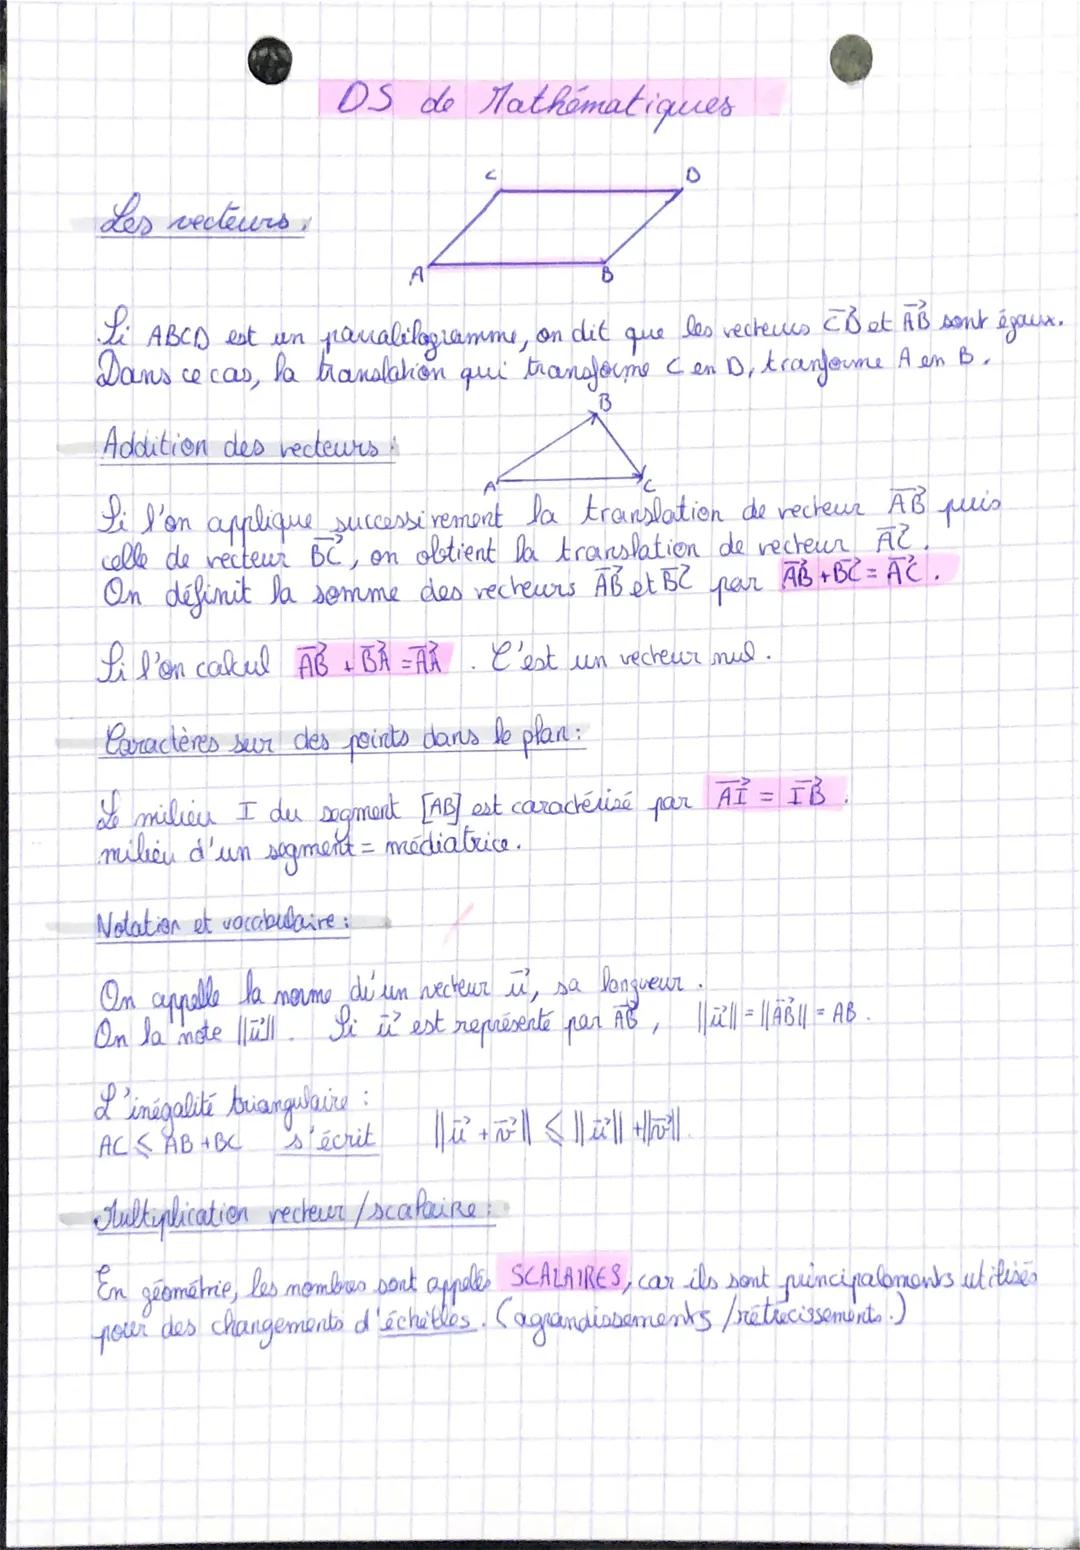 DS de Mathématiques
C D
Les vecteurs :
A B
Si ABCD est un parralélogramme, on dit que les vecteurs CD et AB sont égaux.
Dans ce cas, la translation qui transforme C en D, tranforme A en B.
B
Addition des vecteurs :
A C
Si l'on applique successivement la translation de vecteur AB puis
celle de vecteur BC, on obtient la translation de vecteur AC.
On définit la somme des vecteurs AB et BC par AB + BC = AC.
Si l'on calcul AB + BA = AA. C'est un vecteur nul.
Caractères sur des points dans le plan :
Le milieu I du segment [AB] est caractérisé par AI = IB.
milieu d'un segment = médiatrice.
Notation et vocabulaire :
On appelle la norme d'un vecteur u, sa longueur.
On la note ||u||. Si u est représenté par AB, ||u|| = ||AB|| = AB.
L'inégalité triangulaire :
AC ⩽ AB + BC s'écrit ||u + v|| ⩽ ||u|| + ||v||.
Multiplication vecteur / scalaire :
En géométrie, les nombres sont appelés SCALAIRES, car ils sont principalements utilisés
pour des changements d'échelles. (agrandissements / rétrécissements.)